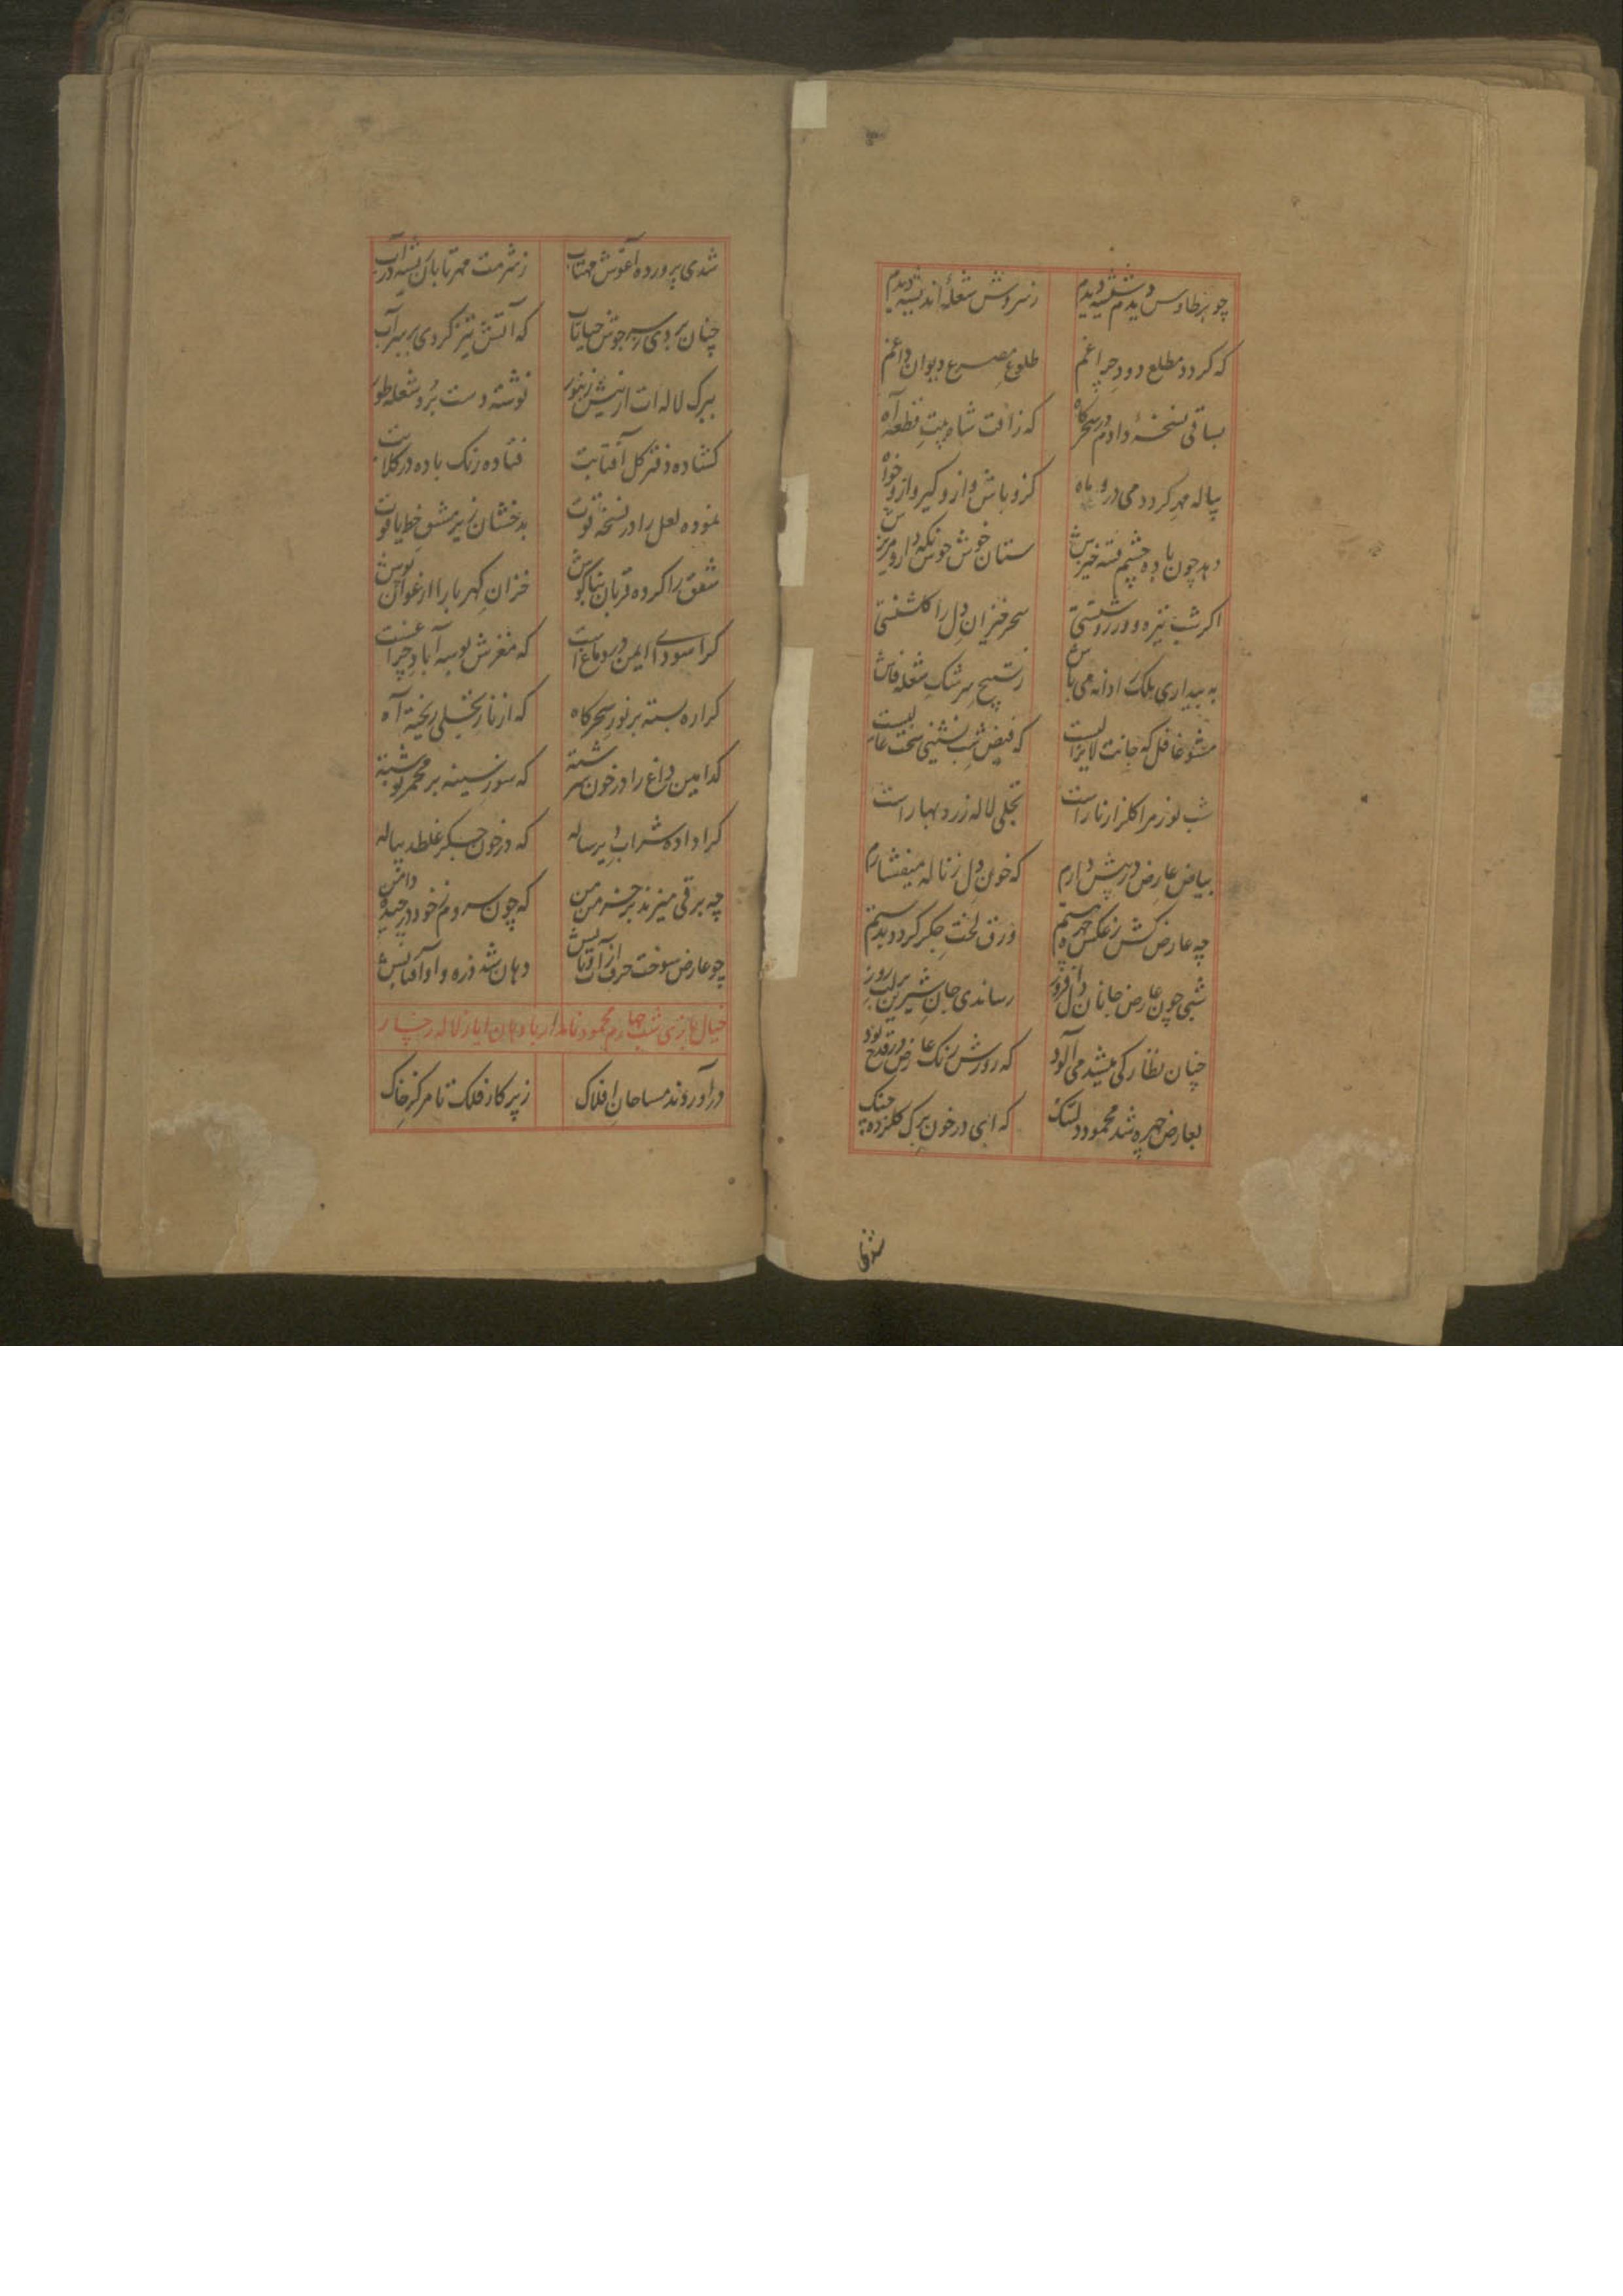 چو پر طاوس دیدم شیشه دیدم زسروش شعلهٔ اندیشه دیدم
که کردد مطلع دود چراغم طلوع مصرع دیوان داغم
بساقی نسخهٔ دادم در سحرکاه که زافت شاه بیت قطعه آه
پیاله مهر کردد می درو ماه کزو باش و ازو کیر و ازو خواه
دهد چون باده چشم فتنه خیزش ستان خوش خوش نکه دار و مریزش
اکر شب تیره ور روشنستی سحر خیزان دل را کلشنستی
به بیداری فلک را دانه می باش زتسبیح سرشک شعله فاش
مشو غافل که جانت لایزالیست که فیض شب نشینی سخت عالیست
شب لوزمرا کلزار نار است تجلی لاله زرد بهار است
بیاض عارض در پیش دارم که خون دل زناله میفشارم
چه عارض کش زعکس چهره ستم ورق لخت جکر کردد بدستم
شبی چون عارض جانان دل افروز رساندی جان شیرین بر لب روز
چنان نظارکی میشد می آلود که رورش رنک عارض در قدح بود
بعارض چهره شد محمود دلتنک که ای در خون برک کل زده چنک
شدی
شدی پرورده آغوش مهتاب زشرمت مهر تابان شیشه در آب
چنان بردی بسر جوش حیا تاب که آتش تیز کردی بر سر آب
ببرک لاله ات از نیش زنبور نوشته دست برد شعله طور
کشاده دفتر کل آفتابت فتاده رنک باده در کلابت
نموده لعل را در نسخه قوت بدخشان زیر مشق خط یاقوت
شفق را کرده قربان بناکوش خزان کهربا را ارغوان نوش
کرا سودای ایمن در دماغ است که مغزش بوسه آباد چراغست
کرا ره بسته بر نور سحرکاه که از نار تجلی ریخته آه
کدامین داغ را در خون سرشته که سوز سینه بر مجمر نوشته
کرا داده شراب دیر ساله که در خون جسکر غلطد پیاله
چه برقی میزند بر خرمن من که چون سروم زخود در چیده دامن
چو عارض سوخت حرف از آب و تابش دهان شد ذره و او آفتابش
خیال بازی شب چهارم محمود نامدار با دهان ایاز لاله رخسار
در آوردند مساحان افلاک زپرکار فلک تا مرکز خاک